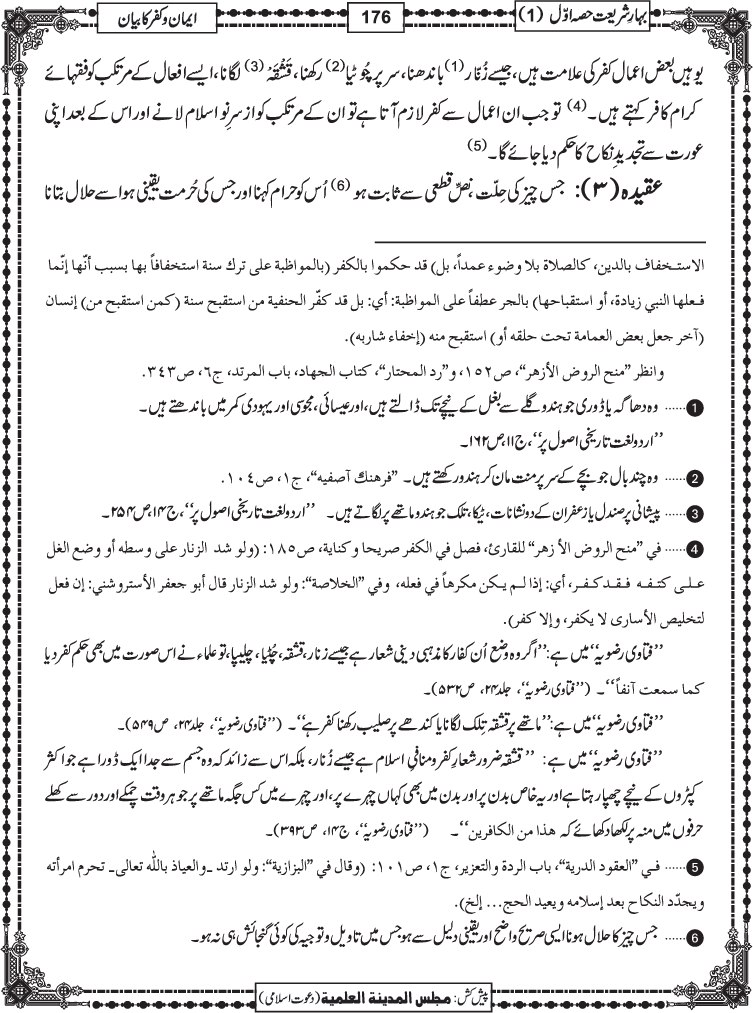 بہارِ شریعت حصہ اوّل (1)
176
ایمان و کفر کا بیان
یوہیں بعض اعمال کفر کی علامت ہیں، جیسے زُنّار (1) باندھنا، سر پر چُوٹیا (2) رکھنا، قَشْقَہ (3) لگانا، ایسے افعال کے مرتکب کو فقہائے
کرام کافر کہتے ہیں۔ (4) تو جب ان اعمال سے کفر لازم آتا ہے تو ان کے مرتکب کو از سرِ نو اسلام لانے اور اس کے بعد اپنی
عورت سے تجدیدِ نکاح کا حکم دیا جائے گا۔ (5)
عقیدہ (۳): جس چیز کی حِلّت، نصِّ قطعی سے ثابت ہو (6) اُس کو حرام کہنا اور جس کی حُرمت یقینی ہو اسے حلال بتانا
الاستخفاف بالدين، كالصلاة بلا وضوء عمداً، بل) قد حكموا بالكفر (بالمواظبة على ترك سنة استخفافاً بها بسبب أنّها إنّما
فعلها النبي زيادة، أو استقباحها) بالجر عطفاً على المواظبة: أي: بل قد كفّر الحنفية من استقبح سنة (كمن استقبح من) إنسان
(آخر جعل بعض العمامة تحت حلقه أو) استقبح منه (إخفاء شاربه).
وانظر ”منح الروض الأزهر“، ص١٥٢، و”رد المحتار“، كتاب الجهاد، باب المرتد، ج٦، ص٣٤٣.
1 ...... وہ دھاگہ یا ڈوری جو ہندو گلے سے بغل کے نیچے تک ڈالتے ہیں، اور عیسائی، مجوسی اور یہودی کمر میں باندھتے ہیں۔
”اردو لغت تاریخی اصول پر“، ج۱۱، ص۱۶۲۔
2 ...... وہ چند بال جو بچے کے سر پر منت مان کر ہندو رکھتے ہیں۔ ”فرهنك آصفيه“، ج١، ص١٠٤.
3 ...... پیشانی پر صندل یا زعفران کے دو نشانات، ٹیکا، تلک جو ہندو ماتھے پر لگاتے ہیں۔ ”اردو لغت تاریخی اصول پر“، ج۱۴، ص۲۵۴۔
4 ...... في ”منح الروض الأزهر“ للقارئ، فصل في الكفر صريحا وكناية، ص١٨٥: (ولو شد الزنار على وسطه أو وضع الغل
على كتفه فقد كفر، أي: إذا لم يكن مكرهاً في فعله، وفي ”الخلاصة“: ولو شد الزنار قال أبو جعفر الأستروشني: إن فعل
لتخليص الأسارى لا يكفر، وإلا كفر).
”فتاوی رضویہ“ میں ہے: ”اگر وہ وضع اُن کفار کا مذہبی دینی شعار ہے جیسے زنار، قشقہ، چُٹیا، چلیپا، تو علماء نے اس صورت میں بھی حکم کفر دیا
کما سمعت آنفاً“۔ (”فتاوی رضویہ“، جلد۲۴، ص۵۳۲)۔
”فتاوی رضویہ“ میں ہے: ”ماتھے پر قشقہ تِلک لگانا یا کندھے پر صلیب رکھنا کفر ہے“۔ (”فتاوی رضویہ“، جلد۲۴، ص۵۴۹)۔
”فتاوی رضویہ“ میں ہے: ”قشقہ ضرور شعارِ کفر و منافیِ اسلام ہے جیسے زُنار، بلکہ اس سے زائد کہ وہ جسم سے جدا ایک ڈورا ہے جو اکثر
کپڑوں کے نیچے چھپا رہتا ہے اور یہ خاص بدن پر اور بدن میں بھی کہاں چہرے پر، اور چہرے میں کس جگہ ماتھے پر جو ہر وقت چمکے اور دور سے کھلے
حرفوں میں منہ پر لکھا دکھائے کہ هذا من الكافرين“۔ (”فتاوی رضویہ“، ج۱۴، ص۳۹۳)۔
5 ...... في ”العقود الدرية“، باب الردة والتعزير، ج١، ص١٠١: (وقال في ”البزازية“: ولو ارتد ـ والعياذ بالله تعالى ـ تحرم امرأته
ويجدّد النكاح بعد إسلامه ويعيد الحج... إلخ).
6 ...... جس چیز کا حلال ہونا ایسی صریح واضح اور یقینی دلیل سے ہو جس میں تاویل و توجیہ کی کوئی گنجائش ہی نہ ہو۔
پیش کش: مجلس المدينة العلمية (دعوتِ اسلامی)